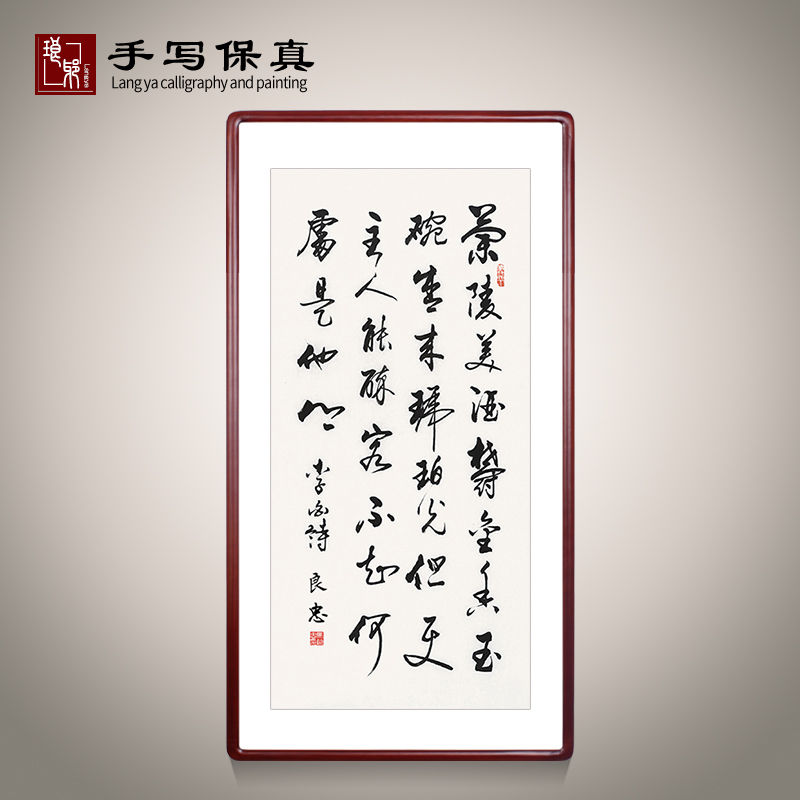 琅琊
Langya
手写保真
Lang ya calligraphy and painting
蘭陵美酒欝金香玉
碗盛来琥珀光但使
主人能醉客不知何
處是他鄉 李白詩 良忠